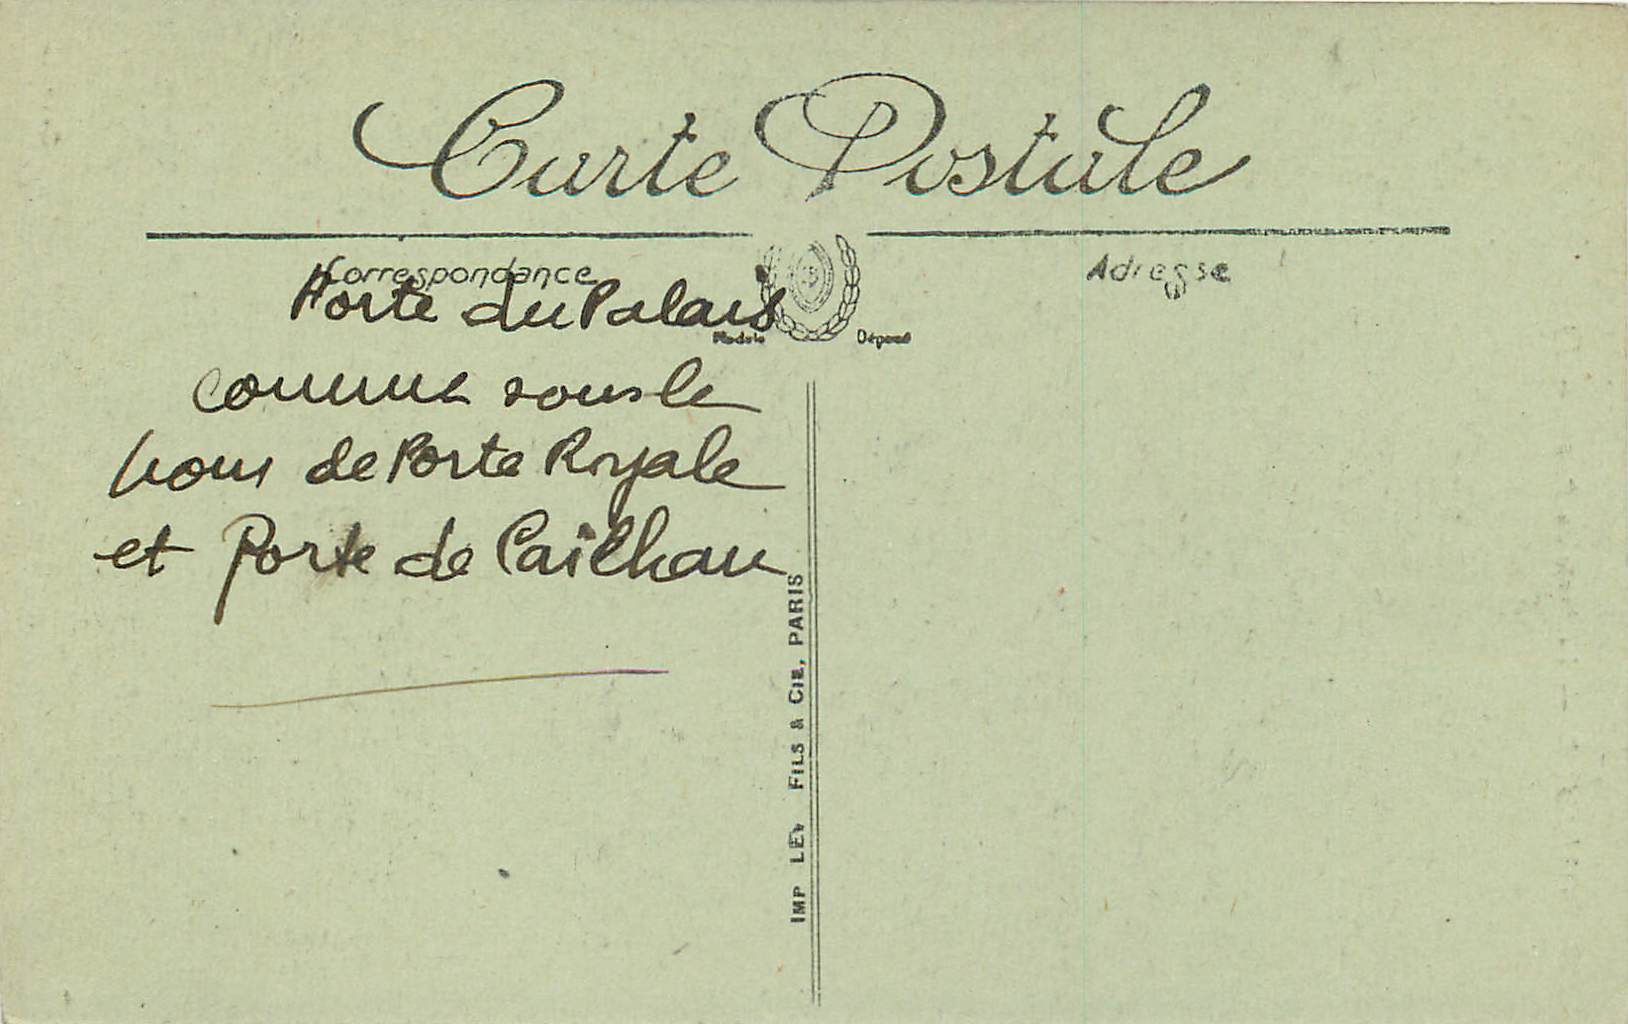 Carte Postale
Correspondance
Adresse
Porte du Palais
Modèle Déposé
connue sous le
nom de Porte Royale
et Porte de Cailhau
IMP LEV FILS & CIE, PARIS